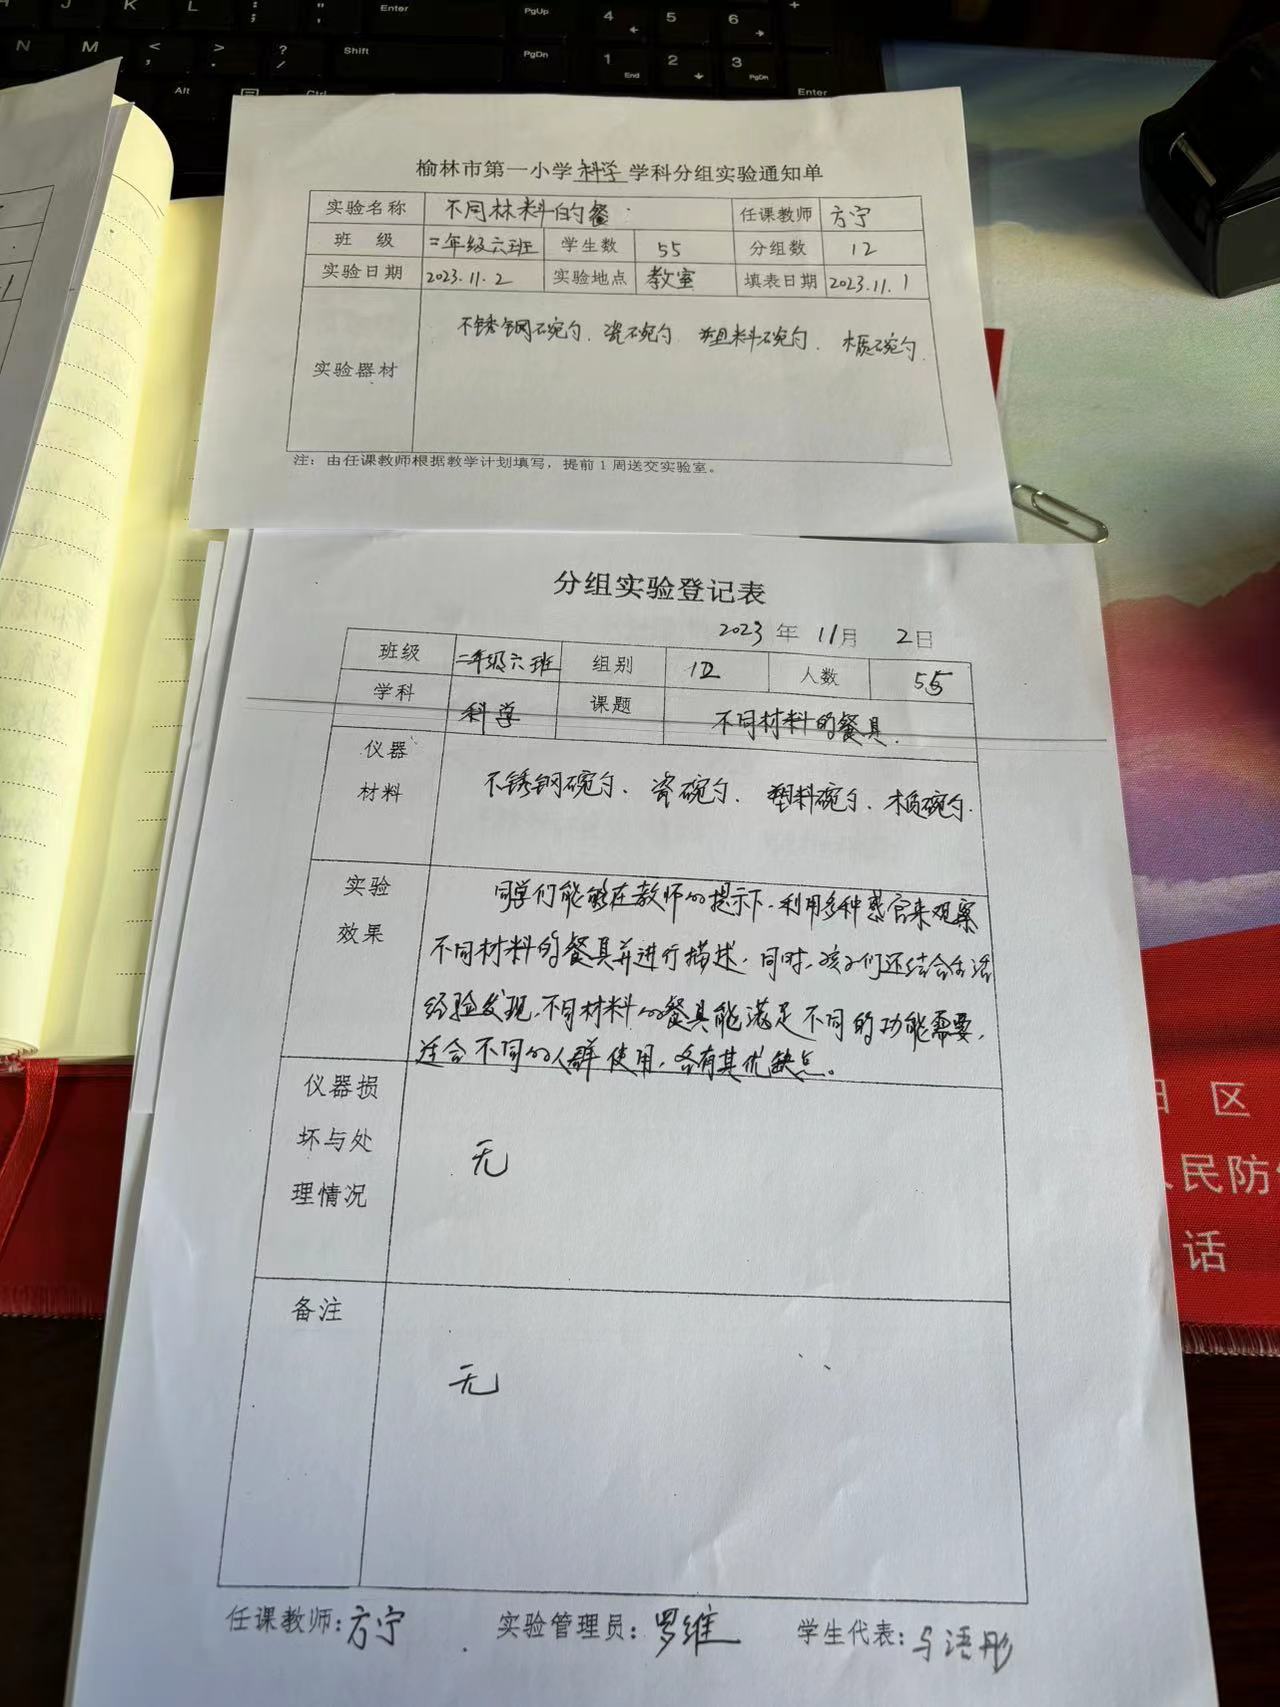 榆林市第一小学科学学科分组实验通知单
实验名称 不同材料的餐 任课教师 方宁
班 级 二年级六班 学生数 55 分组数 12
实验日期 2023.11.2 实验地点 教室 填表日期 2023.11.1
实验器材 不锈钢碗勺、瓷碗勺、塑料碗勺、木质碗勺
注：由任课教师根据教学计划填写，提前1周送交实验室。
分组实验登记表
2023 年 11月 2日
班级 二年级六班 组别 12 人数 55
学科 科学 课题 不同材料的餐具
仪器
材料
不锈钢碗勺、瓷碗勺、塑料碗勺、木质碗勺.
实验
效果
同学们能够在教师的提示下,利用多种感官来观察
不同材料的餐具并进行描述,同时,孩子们还结合生活
经验发现,不同材料的餐具能满足不同的功能需要,
适合不同的人群使用,各有其优缺点。
仪器损
坏与处
理情况
无
备注
无
任课教师:方宁 实验管理员:罗维 学生代表:马语彤
区
民防
话
Enter
PgUp
4
5
6
Shift
PgDn
1
End
2
3
PgDn
Alt
Ctrl
Enter
K
L
N
M